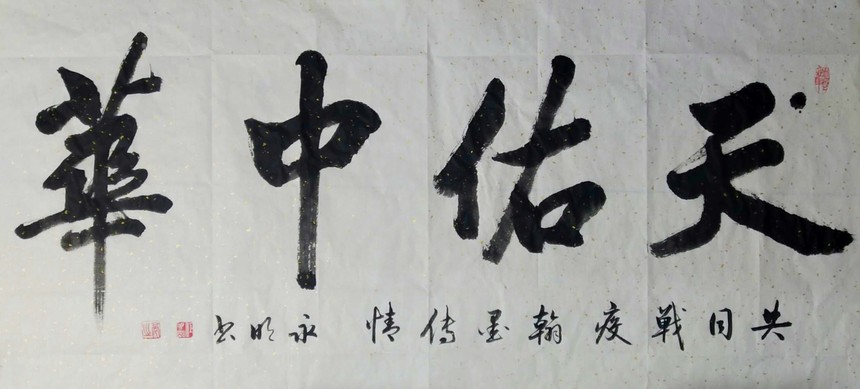 天佑中華
共同戰疫 翰墨傳情 永明书